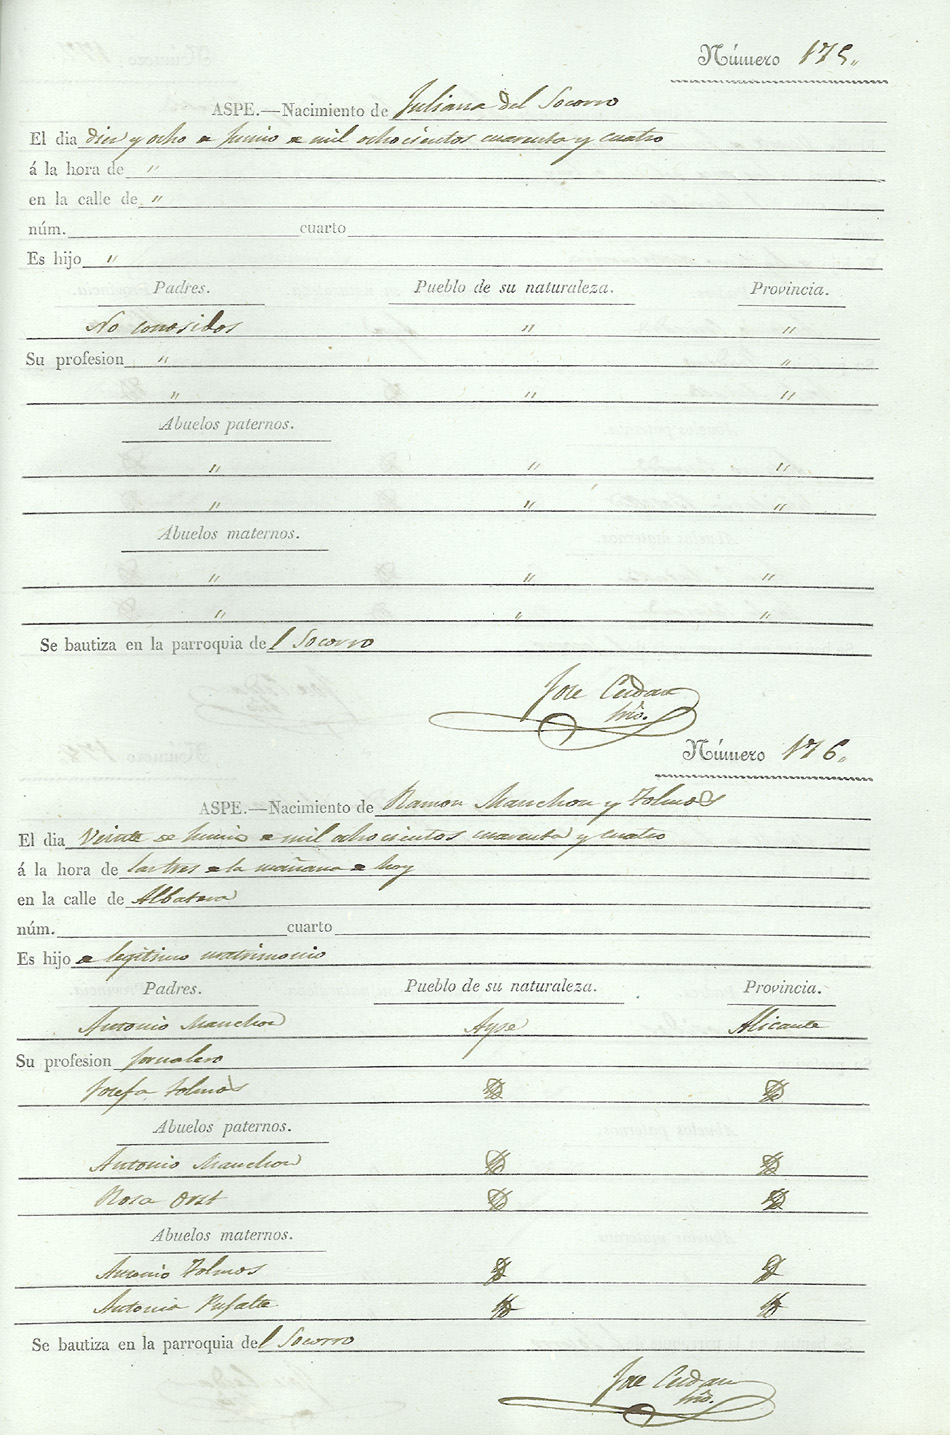 Número 175.
ASPE.—Nacimiento de Juliana del Socorro
El dia diez y ocho de Junio de mil ochocientos cuarenta y cuatro
á la hora de "
en la calle de "
núm. cuarto
Es hijo "
Padres. Pueblo de su naturaleza. Provincia.
No conosidos " "
Su profesion " "
" " "
Abuelos paternos.
" " "
" " "
Abuelos maternos.
" " "
" " "
Se bautiza en la parroquia del Socorro
Jose
Número 176.
ASPE.—Nacimiento de Ramon Manchon y Tolmos
El dia Veinte de Junio de mil ochocientos cuarenta y cuatro
á la hora de las tres de la mañana de hoy
en la calle de Albatera
núm. cuarto
Es hijo de legitimo matrimonio
Padres. Pueblo de su naturaleza. Provincia.
Antonio Manchon Aspe Alicante
Su profesion Jornalero
Josefa Tolmos
Abuelos paternos.
Antonio Manchon
Rosa
Abuelos maternos.
Antonio Tolmos
Antonia Pujalte
Se bautiza en la parroquia del Socorro
Jose